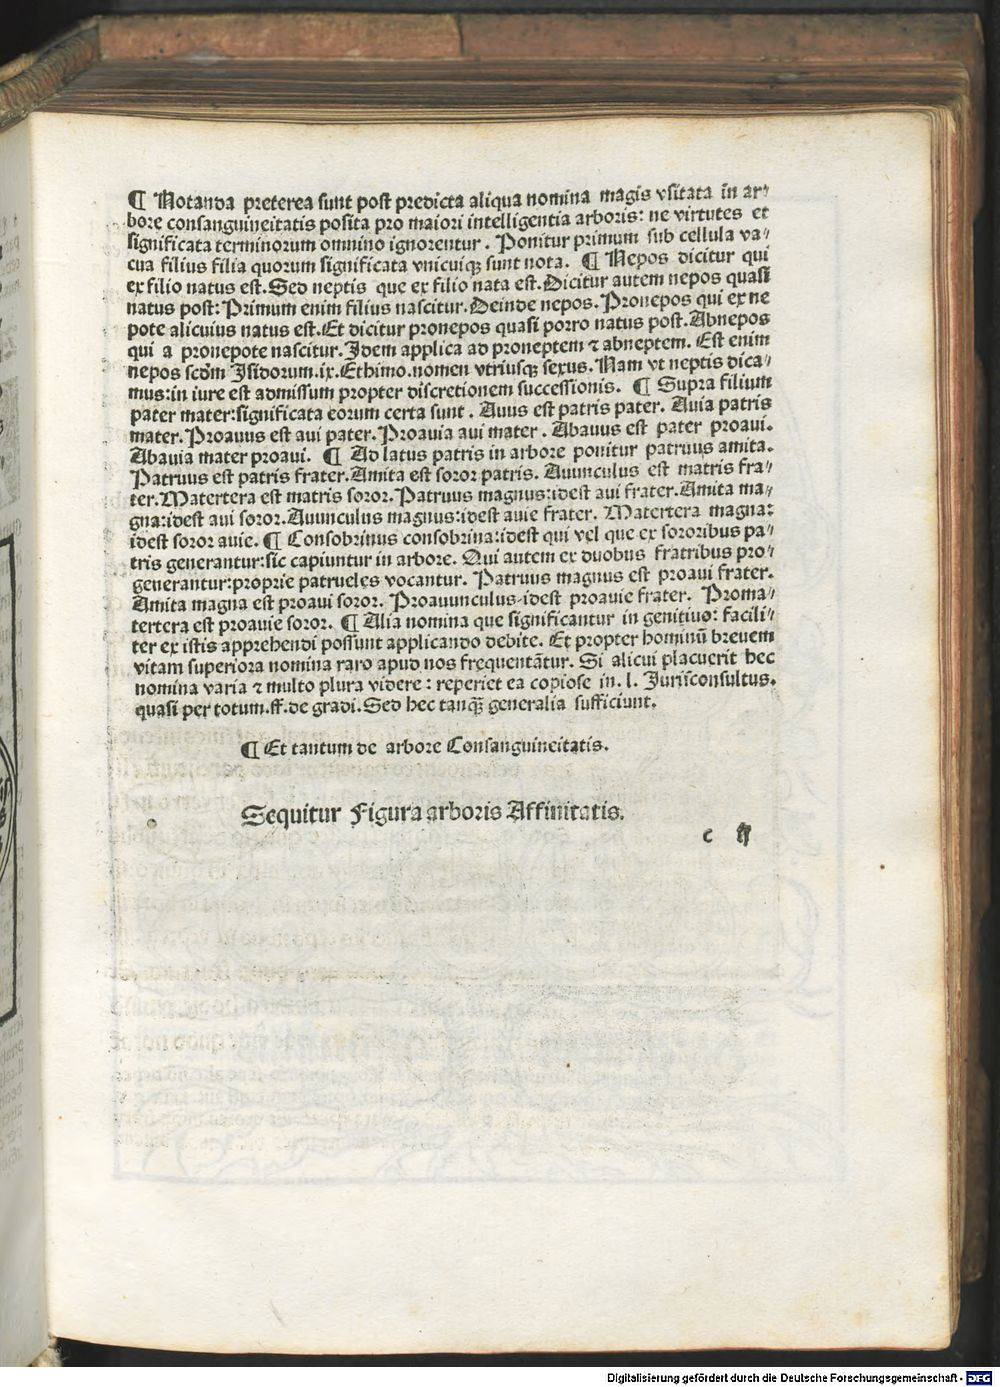 ¶ Notanda preterea sunt post predicta aliqua nomina magis vsitata in ar⸗
bore consanguineitatis posita pro maiori intelligentia arboris: ne virtutes et
significata terminorum omnino ignorentur. Ponitur primum sub cellula va⸗
cua filius filia quorum significata vnicuiqꝫ sunt nota. ¶ Nepos dicitur qui
ex filio natus est. Sed neptis que ex filio nata est. Dicitur autem nepos quasi
natus post: Primum enim filius nascitur. Deinde nepos. Pronepos qui ex ne
pote alicuius natus est. Et dicitur pronepos quasi porro natus post. Abnepos
qui a pronepote nascitur. Idem applica ad proneptem ⁊ abneptem. Est enim
nepos scdm Isidorum .ix. Ethimo. nomen vtriusqꝫ sexus. Nam vt neptis dica⸗
mus: in iure est admissum propter discretionem successionis. ¶ Supra filium
pater mater: significata eorum certa sunt. Auus est patris pater. Auia patris
mater. Proauus est aui pater. Proauia aui mater. Abauus est pater proaui.
Abauia mater proaui. ¶ Ad latus patris in arbore ponitur patruus amita.
Patruus est patris frater. Amita est soror patris. Auunculus est matris fra⸗
ter. Matertera est matris soror. Patruus magnus: idest aui frater. Amita ma⸗
gna: idest aui soror. Auunculus magnus: idest auie frater. Matertera magna:
idest soror auie. ¶ Consobrinus consobrina: idest qui vel que ex sororibus pa⸗
tris generantur: sic capiuntur in arbore. Qui autem ex duobus fratribus pro⸗
generantur: proprie patrueles vocantur. Patruus magnus est proaui frater.
Amita magna est proaui soror. Proauunculus idest proauie frater. Proma⸗
tertera est proauie soror. ¶ Alia nomina que significantur in genitiuo: facili⸗
ter ex istis apprehendi possunt applicando debite. Et propter hominū breuem
vitam superiora nomina raro apud nos frequentātur. Si alicui placuerit hec
nomina varia ⁊ multo plura videre: reperiet ea copiose in .l. Jurisconsultus.
quasi per totum .ff. de gradi. Sed hec tanqꝫ generalia sufficiunt.
¶ Et tantum de arbore Consanguineitatis.
Sequitur Figura arboris Affinitatis.
c ij
Digitalisierung gefördert durch die Deutsche Forschungsgemeinschaft - DFG